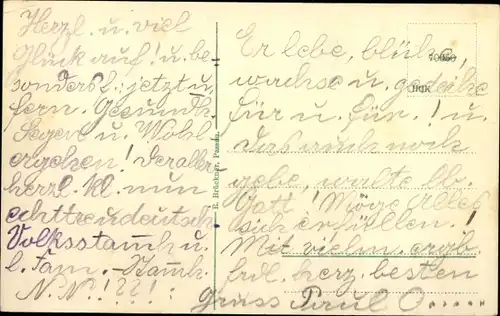 Herzl. u. viel
Glück auf! u. be
sonders f. jetzt u
fern. Gesundh.
Segen u. Wohl
ergehen! der aller
herzl. kl. nun
echttrendeutsch.
Volksstamm u.
l. Fam. Stamh.
N. N.! ? ? ! :
E. Brückner, Passau.
Er lebe, blühe,
wachse u. gedeihe
für u. für! u.
das auch noch
gebe, walte lb.
Gott! Möge Alles
sich erfüllen!
Mit vielen ergb.
frdl. herz. besten
Gruss Paul O.....